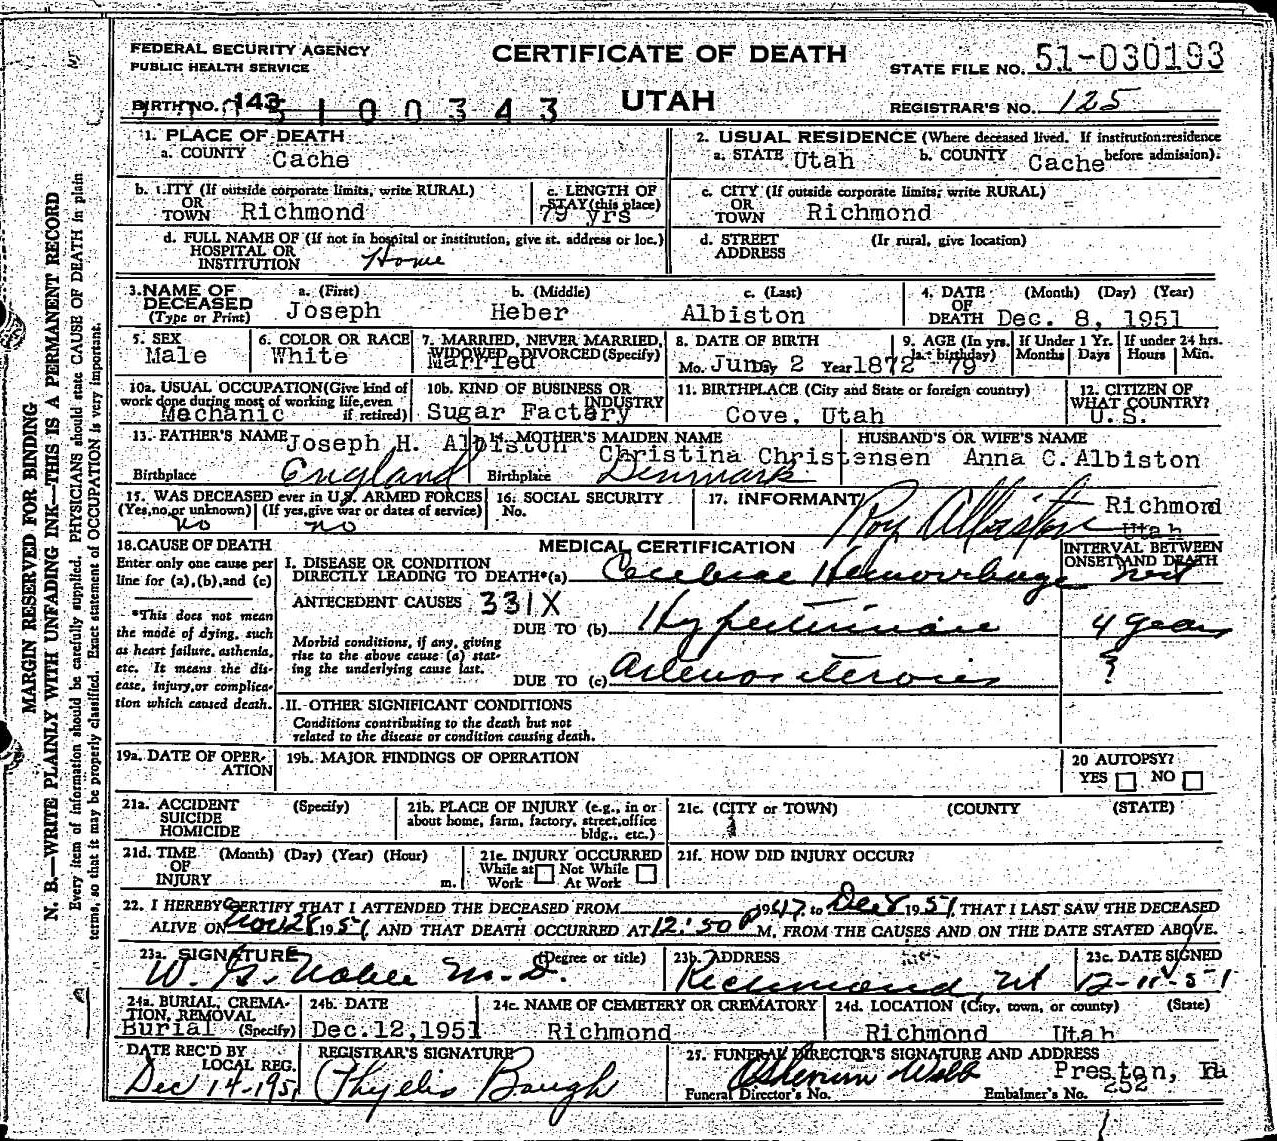 FEDERAL SECURITY AGENCY
PUBLIC HEALTH SERVICE
CERTIFICATE OF DEATH
STATE FILE NO. 51-030193
BIRTH NO. 143
5 1 0 0 3 4 3
UTAH
REGISTRAR'S NO. 125
1. PLACE OF DEATH
a. COUNTY Cache
2. USUAL RESIDENCE (Where deceased lived. If institution: residence before admission).
a. STATE Utah b. COUNTY Cache
b. CITY (If outside corporate limits, write RURAL)
OR
TOWN Richmond
c. LENGTH OF
STAY (this place)
79 yrs
c. CITY (If outside corporate limits, write RURAL)
OR
TOWN Richmond
d. FULL NAME OF (If not in hospital or institution, give st. address or loc.)
HOSPITAL OR
INSTITUTION Home
d. STREET (If rural, give location)
ADDRESS
3. NAME OF
DECEASED
(Type or Print)
a. (First) b. (Middle) c. (Last)
Joseph Heber Albiston
4. DATE (Month) (Day) (Year)
OF
DEATH Dec. 8, 1951
5. SEX
Male
6. COLOR OR RACE
White
7. MARRIED, NEVER MARRIED,
WIDOWED, DIVORCED (Specify)
Married
8. DATE OF BIRTH
Mo. June Day 2 Year 1872
9. AGE (In yrs. last birthday)
79
If Under 1 Yr.
Months Days
If under 24 hrs.
Hours Min.
10a. USUAL OCCUPATION (Give kind of
work done during most of working life, even
if retired)
Mechanic
10b. KIND OF BUSINESS OR
INDUSTRY
Sugar Factory
11. BIRTHPLACE (City and State or foreign country)
Cove, Utah
12. CITIZEN OF
WHAT COUNTRY?
U.S.
13. FATHER'S NAME Joseph H. Albiston
Birthplace England
14. MOTHER'S MAIDEN NAME
Christina Christensen
Birthplace Denmark
HUSBAND'S OR WIFE'S NAME
Anna C. Albiston
15. WAS DECEASED ever in U.S. ARMED FORCES
(Yes, no, or unknown) (If yes, give war or dates of service)
no no
16. SOCIAL SECURITY
No.
17. INFORMANT Roy Albiston Richmond
Utah
18. CAUSE OF DEATH
Enter only one cause per
line for (a), (b), and (c)
*This does not mean
the mode of dying, such
as heart failure, asthenia,
etc. It means the dis-
ease, injury, or complica-
tion which caused death.
MEDICAL CERTIFICATION
INTERVAL BETWEEN
ONSET AND DEATH
I. DISEASE OR CONDITION
DIRECTLY LEADING TO DEATH*(a) Cerebral Hemorrhage
ANTECEDENT CAUSES 331X
DUE TO (b) 4 years
Morbid conditions, if any, giving
rise to the above cause (a) stat-
ing the underlying cause last.
DUE TO (c) ?
II. OTHER SIGNIFICANT CONDITIONS
Conditions contributing to the death but not
related to the disease or condition causing death.
19a. DATE OF OPER-
ATION
19b. MAJOR FINDINGS OF OPERATION
20 AUTOPSY?
YES NO
21a. ACCIDENT (Specify)
SUICIDE
HOMICIDE
21b. PLACE OF INJURY (e.g., in or
about home, farm, factory, street, office
bldg., etc.)
21c. (CITY or TOWN) (COUNTY) (STATE)
21d. TIME (Month) (Day) (Year) (Hour)
OF
INJURY m.
21e. INJURY OCCURRED
While at Not While
Work At Work
21f. HOW DID INJURY OCCUR?
22. I HEREBY CERTIFY THAT I ATTENDED THE DECEASED FROM 1947, to Dec 8 1951, THAT I LAST SAW THE DECEASED
ALIVE ON Nov 28 1951 AND THAT DEATH OCCURRED AT 12:50 P M., FROM THE CAUSES AND ON THE DATE STATED ABOVE.
23a. SIGNATURE (Degree or title)
W. G. Noble M.D.
23b. ADDRESS
Richmond, Ut
23c. DATE SIGNED
12-11-51
24a. BURIAL, CREMA-
TION, REMOVAL
Burial (Specify)
24b. DATE
Dec.12,1951
24c. NAME OF CEMETERY OR CREMATORY
Richmond
24d. LOCATION (City, town, or county) (State)
Richmond Utah
DATE REC'D BY
LOCAL REG.
Dec 14-1951
REGISTRAR'S SIGNATURE
Phyllis Baugh
25. FUNERAL DIRECTOR'S SIGNATURE AND ADDRESS
Webb Preston, Ida
Funeral Director's No. Embalmer's No. 252
MARGIN RESERVED FOR BINDING
N. B.—WRITE PLAINLY WITH UNFADING INK—THIS IS A PERMANENT RECORD
Every item of information should be carefully supplied. PHYSICIANS should state CAUSE OF DEATH in plain
terms, so that it may be properly classified. Exact statement of OCCUPATION is very important.